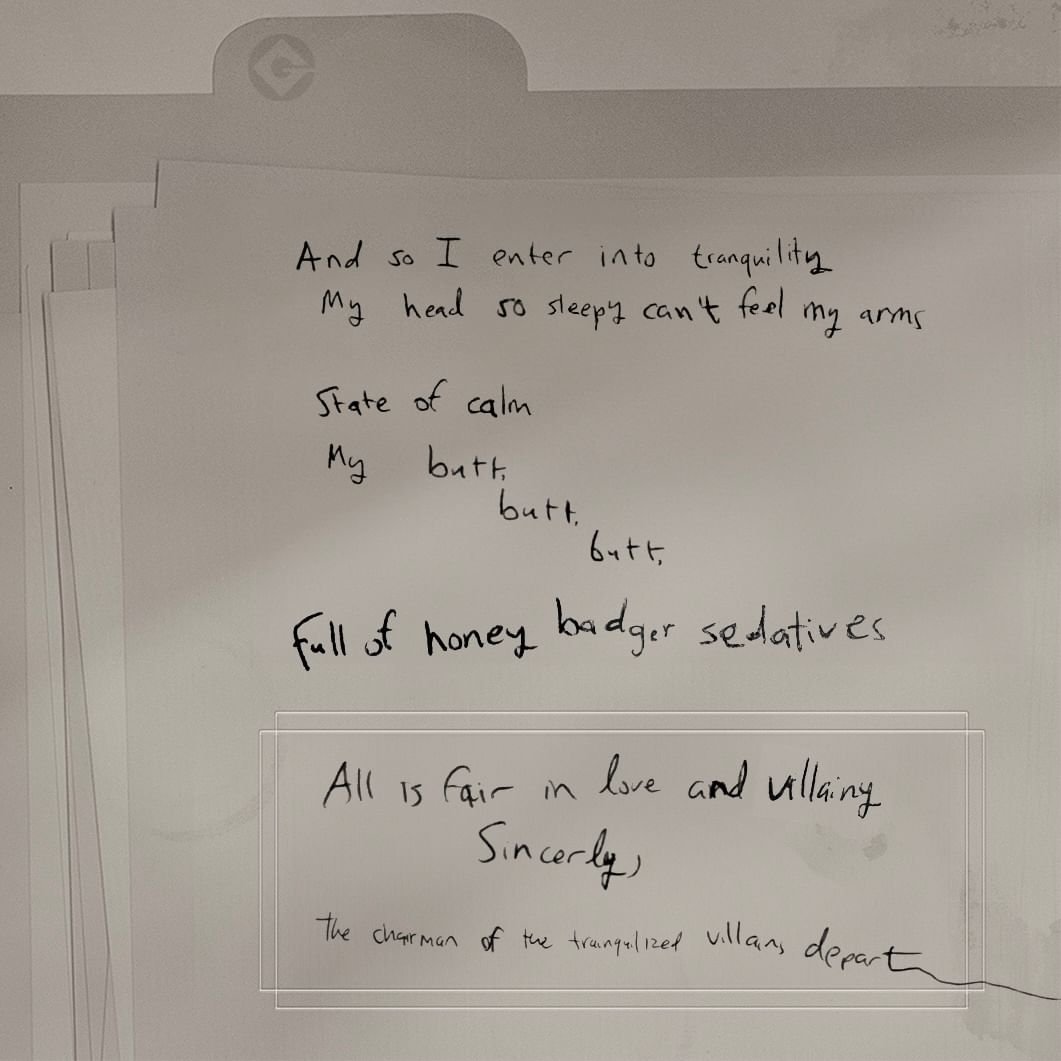 And so I enter into tranquility
My head so sleepy can't feel my arms
State of calm
My butt,
butt,
butt,
Full of honey badger sedatives
All is fair in love and villainy
Sincerly,
The chairman of the tranquilized villans depart